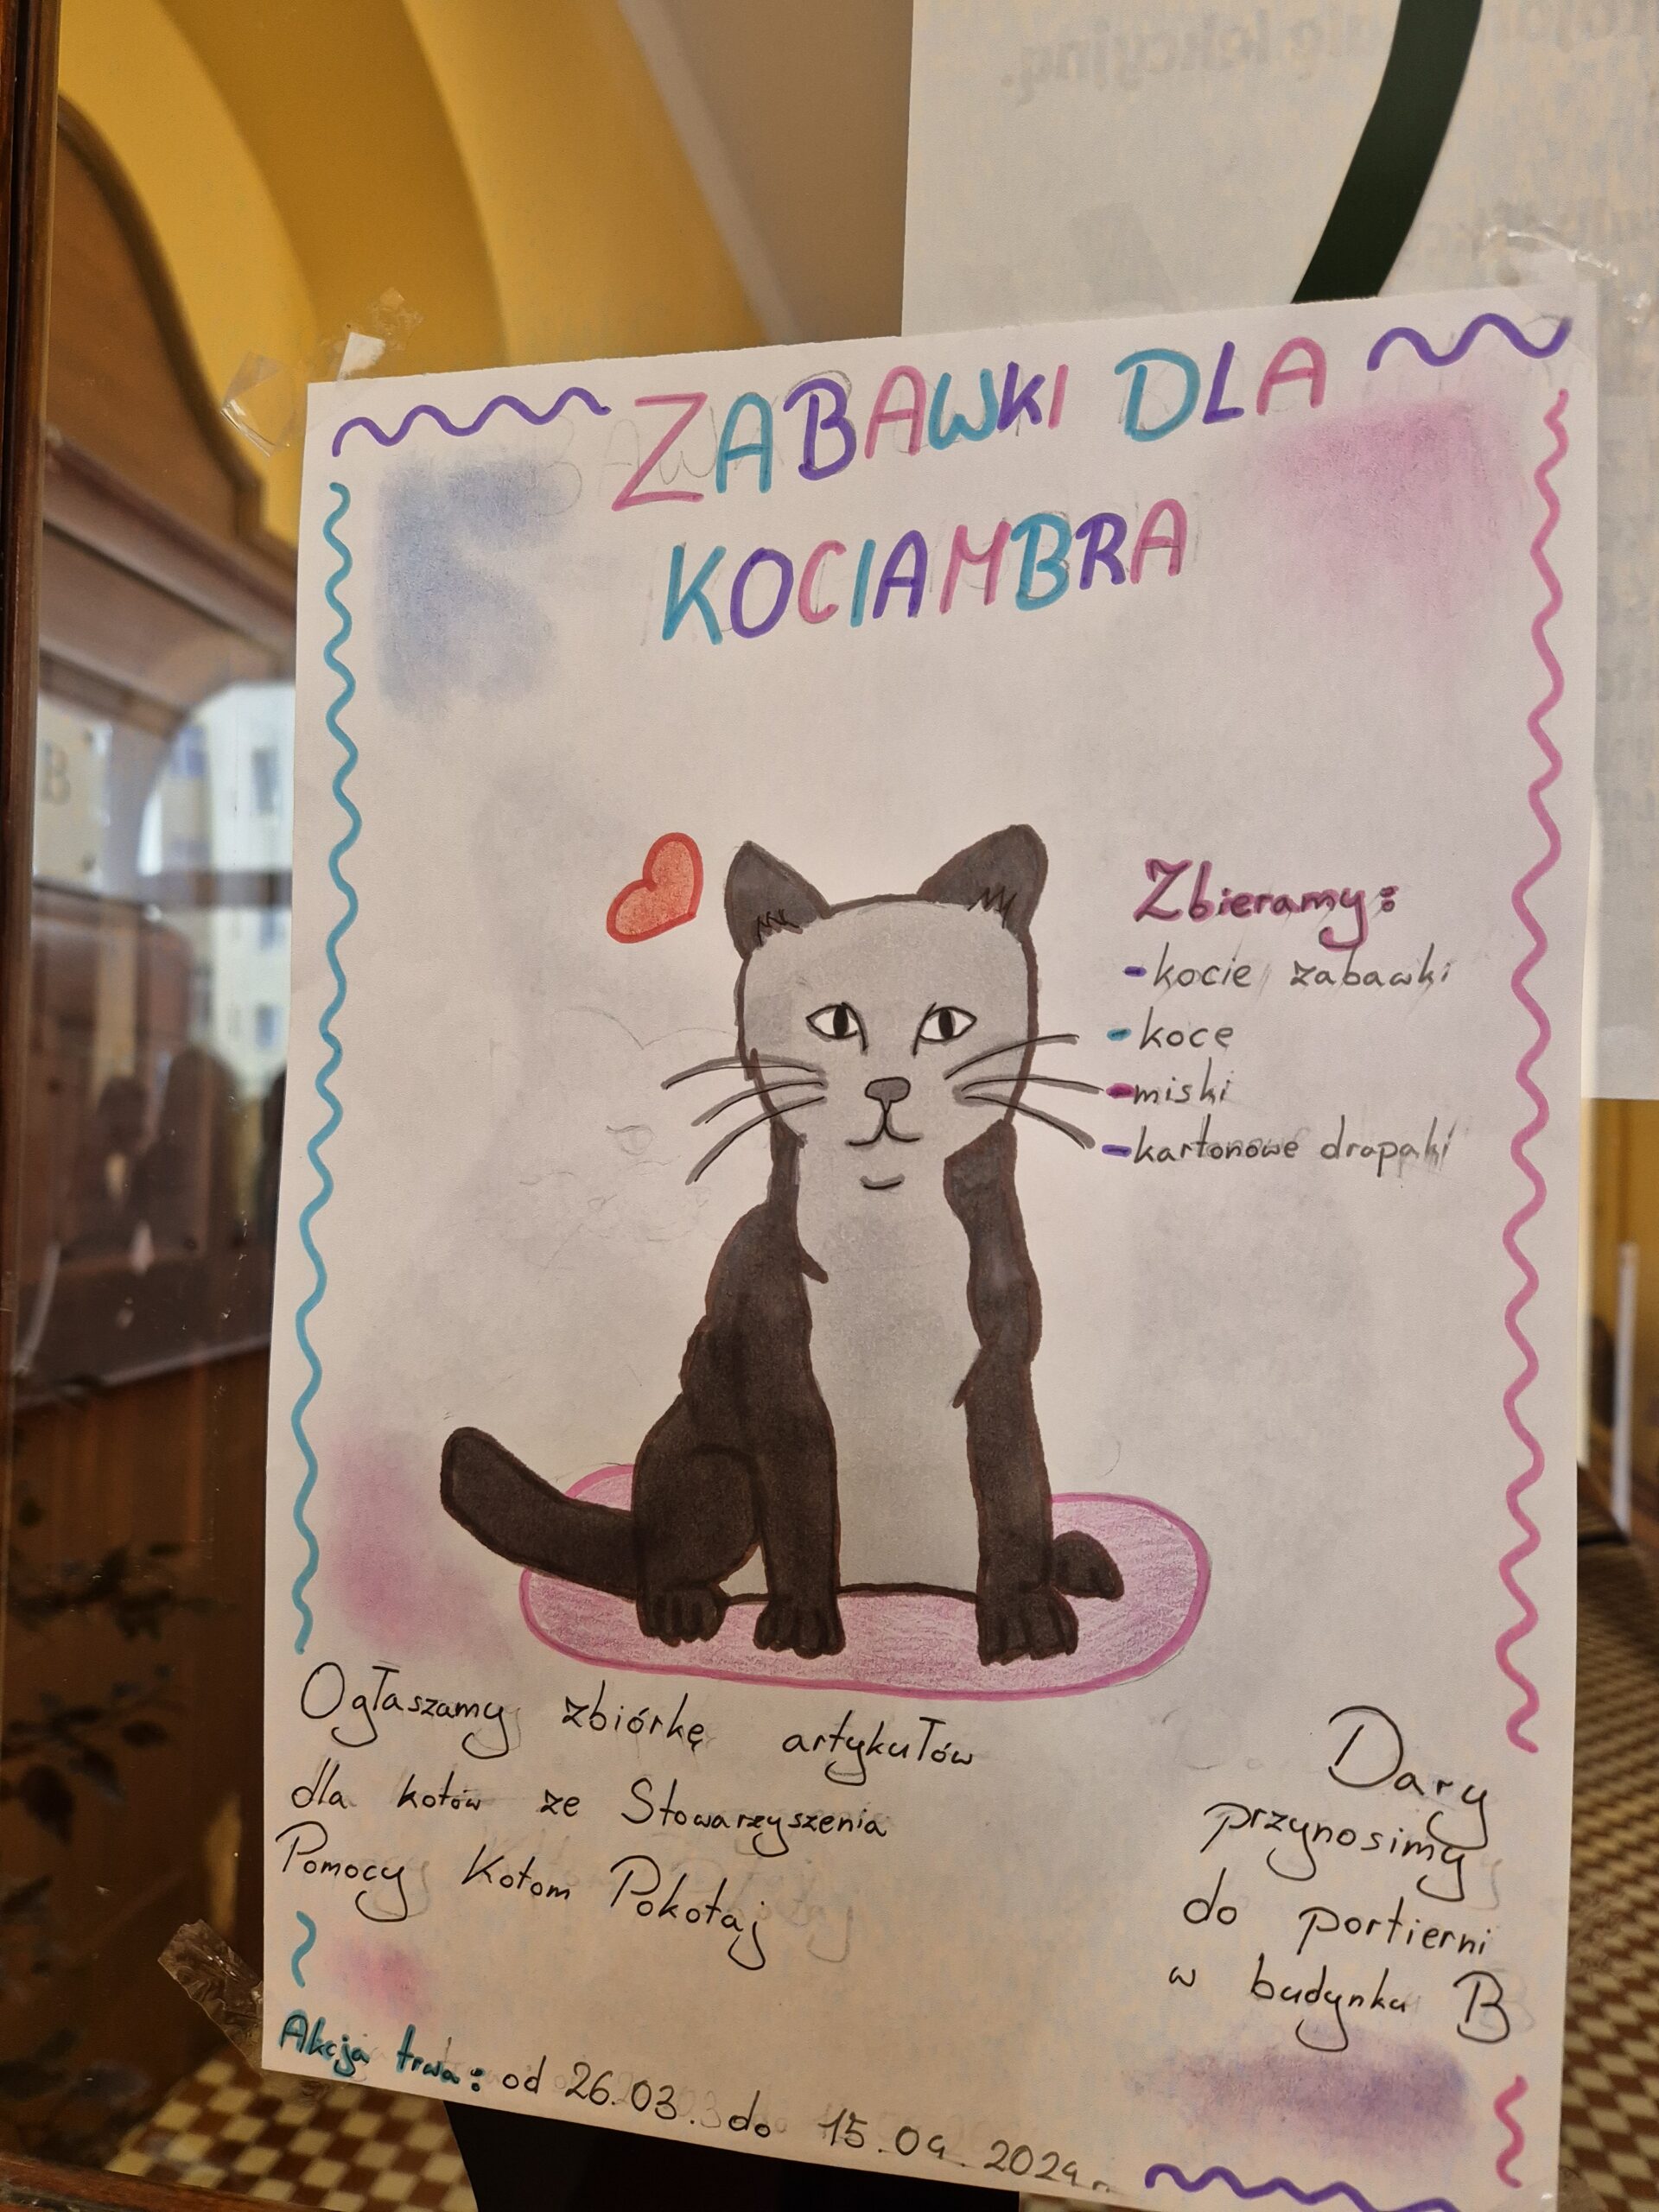 ZABAWKI DLA
KOCIAMBRA
Zbieramy:
-kocie zabawki
-koce
-miski
-kartonowe drapaki
Ogłaszamy zbiórkę artykułów
dla kotów ze Stowarzyszenia
Pomocy Kotom Pokotaj
Dary
przynosimy
do portierni
w budynku B
Akcja trwa: od 26.03. do 15.04.2024r.